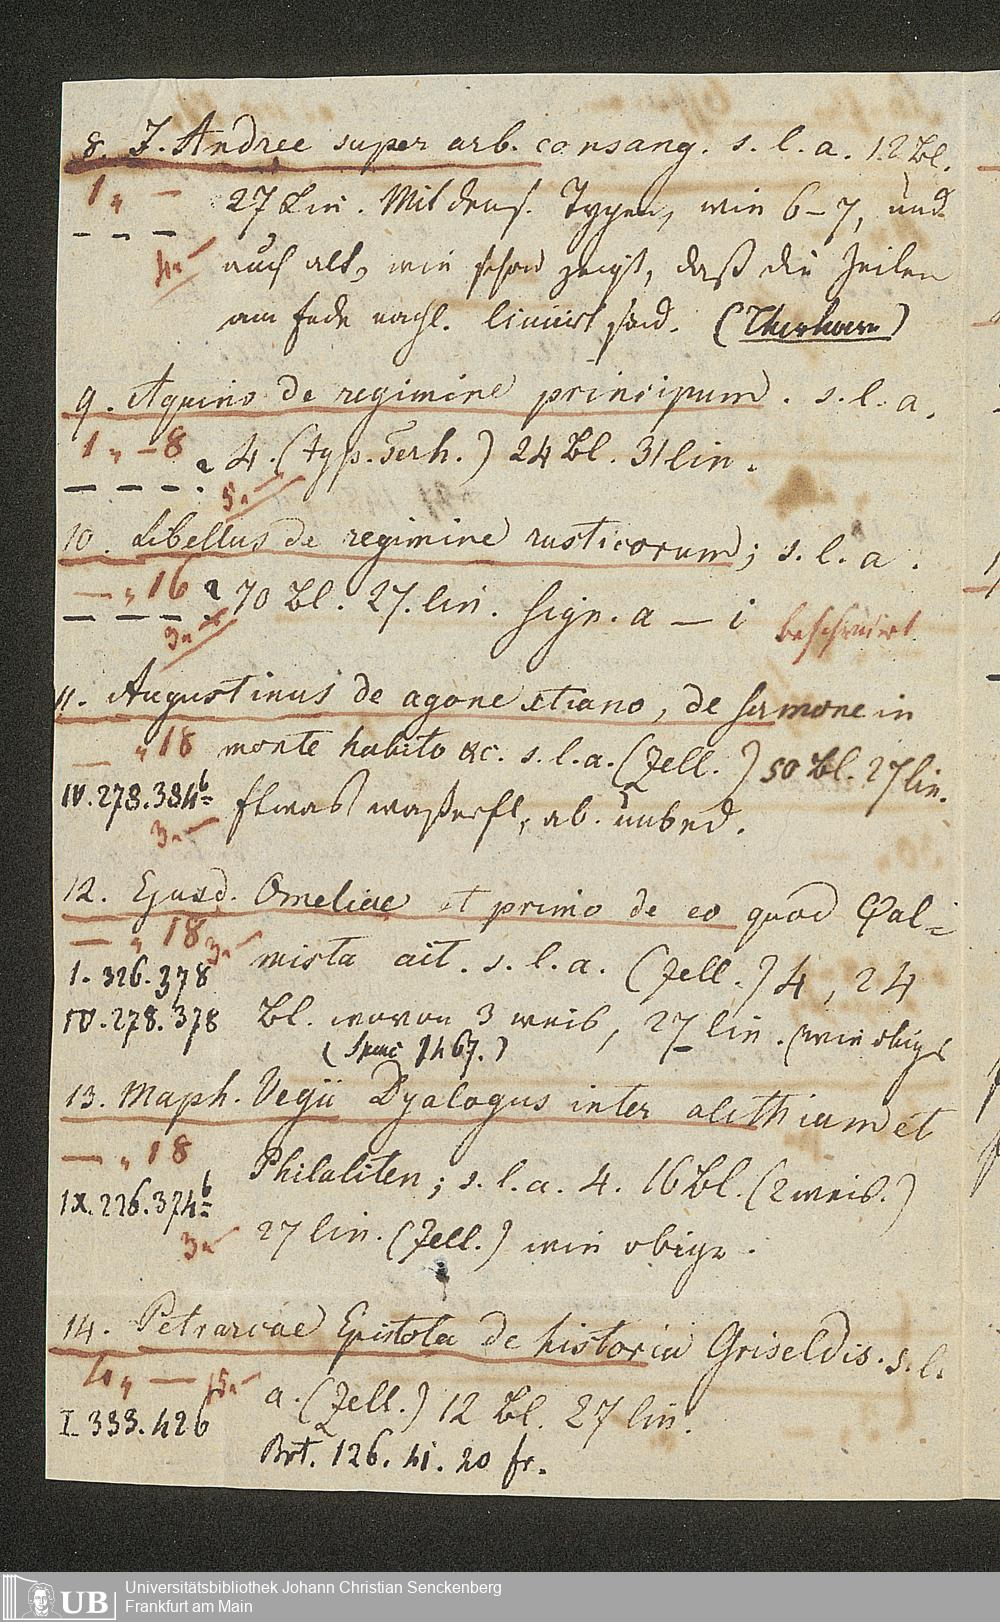 8. J. Andree super arb. consang. s. l. a. 12 Bl.
1 „ — 27 Lin. Mit dens. Typen, wie 6–7, und
4 „ — auch alt, wie schon zeigt, daß die Zeilen
am Ende nachl. liniirt sind. (Therhoern)
9. Aquino de regimine principum. s. l. a.
1 „ – 8 4. (typ. Terh.) 24 Bl. 31 lin.
5 „ —
10. Libellus de regimine rusticorum; s. l. a.
— „ 16 70 Bl. 27. lin. Sign. a — i beschmiert
3 „ —
11. Augustinus de agone xtiano, de sermone in
— „ 18 monte habito &c. s. l. a. (Zell.) 50 Bl. 27 lin.
IV. 278. 384b Etwas waßerfl, ab. unbed.
3 „ —
12. Ejusd. Omeliae et primo de eo quod Psal-
— „ 18 3 „ — mista ait. s. l. a. (Zell.) 4, 24
I. 326. 378
IV. 278. 378 Bl. wovon 3 weiß, 27 lin. (wie obige
1467.)
13. Maph. Vegii Dyalogus inter alithiam et
— „ 18 Philaliten; s. l. a. 4. 16 Bl. (2 weiß.)
IX. 226. 374b
3 „ — 27 lin. (Zell.) wie obige.
14. Petrarcae Epistola de historia Griseldis. s. l.
— 15 „ — a. (Zell.) 12 Bl. 27 lin.
I. 333. 426
Brt. 126. 41. 20 fr.
Universitätsbibliothek Johann Christian Senckenberg
UB Frankfurt am Main